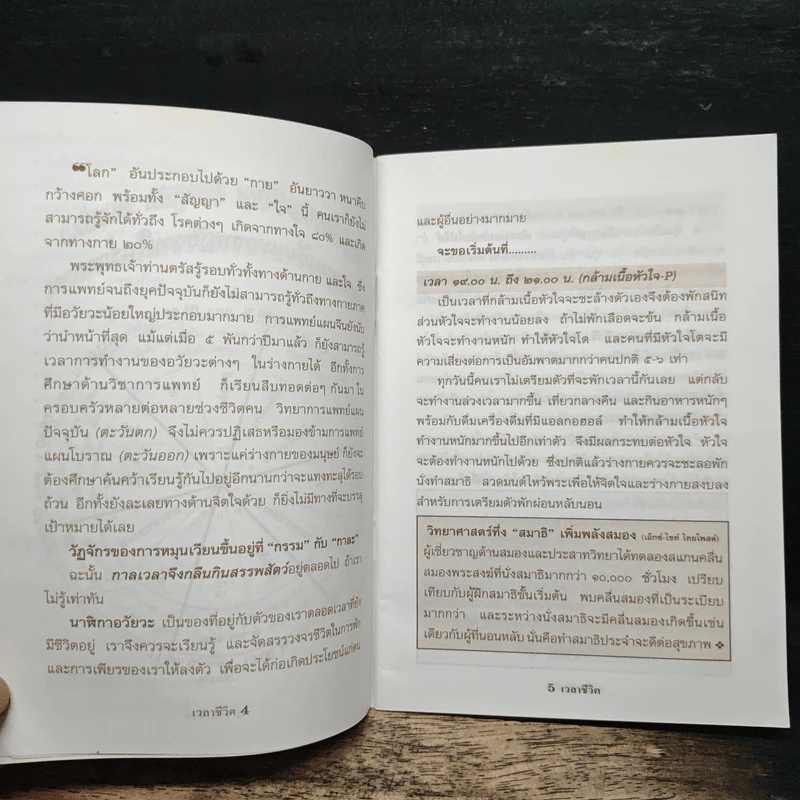 “โลก” อันประกอบไปด้วย “กาย” อันยาววา หนาคืบ
กว้างศอก พร้อมทั้ง “สัญญา” และ “ใจ” นี้ คนเราก็ยังไม่
สามารถรู้จักได้ทั่วถึง โรคต่างๆ เกิดจากทางใจ ๘๐% และเกิด
จากทางกาย ๒๐%
พระพุทธเจ้าท่านตรัสรู้รอบทั่วทั้งทางด้านกาย และใจ ซึ่ง
การแพทย์จนถึงยุคปัจจุบันก็ยังไม่สามารถรู้ทั่วถึงทางกายภาค
ที่มีอวัยวะน้อยใหญ่ประกอบมากมาย การแพทย์แผนจีนยังนับ
ว่านำหน้าที่สุด แม้แต่เมื่อ ๕ พันกว่าปีมาแล้ว ก็ยังสามารถรู้
เวลาการทำงานของอวัยวะต่างๆ ในร่างกายได้ อีกทั้งการ
ศึกษาด้านวิชาการแพทย์ ก็เรียนสืบทอดต่อๆ กันมา ใน
ครอบครัวหลายต่อหลายช่วงชีวิตคน วิทยาการแพทย์แผน
ปัจจุบัน (ตะวันตก) จึงไม่ควรปฏิเสธหรือมองข้ามการแพทย์
แผนโบราณ (ตะวันออก) เพราะแค่ร่างกายของมนุษย์ ก็ยังจะ
ต้องศึกษาค้นคว้าเรียนรู้กันไปอยู่อีกนานกว่าจะแทงทะลุได้รอบ
ถ้วน อีกทั้งยังละเลยทางด้านจิตใจด้วย ก็ยิ่งไม่มีทางที่จะบรรลุ
เป้าหมายได้เลย
วัฏจักรของการหมุนเวียนขึ้นอยู่ที่ “กรรม” กับ “กาละ”
ฉะนั้น กาลเวลาจึงกลืนกินสรรพสัตว์อยู่ตลอดไป ถ้าเรา
ไม่รู้เท่าทัน
นาฬิกาอวัยวะ เป็นของที่อยู่กับตัวของเราตลอดเวลาที่ยัง
มีชีวิตอยู่ เราจึงควรจะเรียนรู้ และจัดสรรวงจรชีวิตในการพัก
และการเพียรของเราให้ลงตัว เพื่อจะได้ก่อเกิดประโยชน์แก่ตน
เวลาชีวิต 4
และผู้อื่นอย่างมากมาย
จะขอเริ่มต้นที่.........
เวลา ๑๙.๐๐ น. ถึง ๒๑.๐๐ น. (กล้ามเนื้อหัวใจ-P)
เป็นเวลาที่กล้ามเนื้อหัวใจจะชะล้างตัวเองจึงต้องพักสนิท
ส่วนหัวใจจะทำงานน้อยลง ถ้าไม่พักเลือดจะข้น กล้ามเนื้อ
หัวใจจะทำงานหนัก ทำให้หัวใจโต และคนที่มีหัวใจโตจะมี
ความเสี่ยงต่อการเป็นอัมพาตมากกว่าคนปกติ ๕-๖ เท่า
ทุกวันนี้คนเราไม่เตรียมตัวที่จะพักเวลานี้กันเลย แต่กลับ
จะทำงานล่วงเวลามากขึ้น เที่ยวกลางคืน และกินอาหารหนักๆ
พร้อมกับดื่มเครื่องดื่มที่มีแอลกอฮอล์ ทำให้กล้ามเนื้อหัวใจ
ทำงานหนักมากขึ้นไปอีกเท่าตัว จึงมีผลกระทบต่อหัวใจ หัวใจ
จะต้องทำงานหนักไปด้วย ซึ่งปกติแล้วร่างกายควรจะชะลอพัก
นั่งทำสมาธิ สวดมนต์ไหว้พระเพื่อให้จิตใจและร่างกายสงบลง
สำหรับการเตรียมตัวพักผ่อนหลับนอน
วิทยาศาสตร์ทึ่ง “สมาธิ” เพิ่มพลังสมอง (เอ็กซ์-ไซท์ ไทยโพสต์)
ผู้เชี่ยวชาญด้านสมองและประสาทวิทยาได้ทดลองสแกนคลื่น
สมองพระสงฆ์ที่นั่งสมาธิมากกว่า ๑๐,๐๐๐ ชั่วโมง เปรียบ
เทียบกับผู้ฝึกสมาธิขั้นเริ่มต้น พบคลื่นสมองที่เป็นระเบียบ
มากกว่า และระหว่างนั่งสมาธิจะมีคลื่นสมองเกิดขึ้นเช่น
เดียวกับผู้ที่นอนหลับ นั่นคือทำสมาธิประจำจะดีต่อสุขภาพ ❖
5 เวลาชีวิต